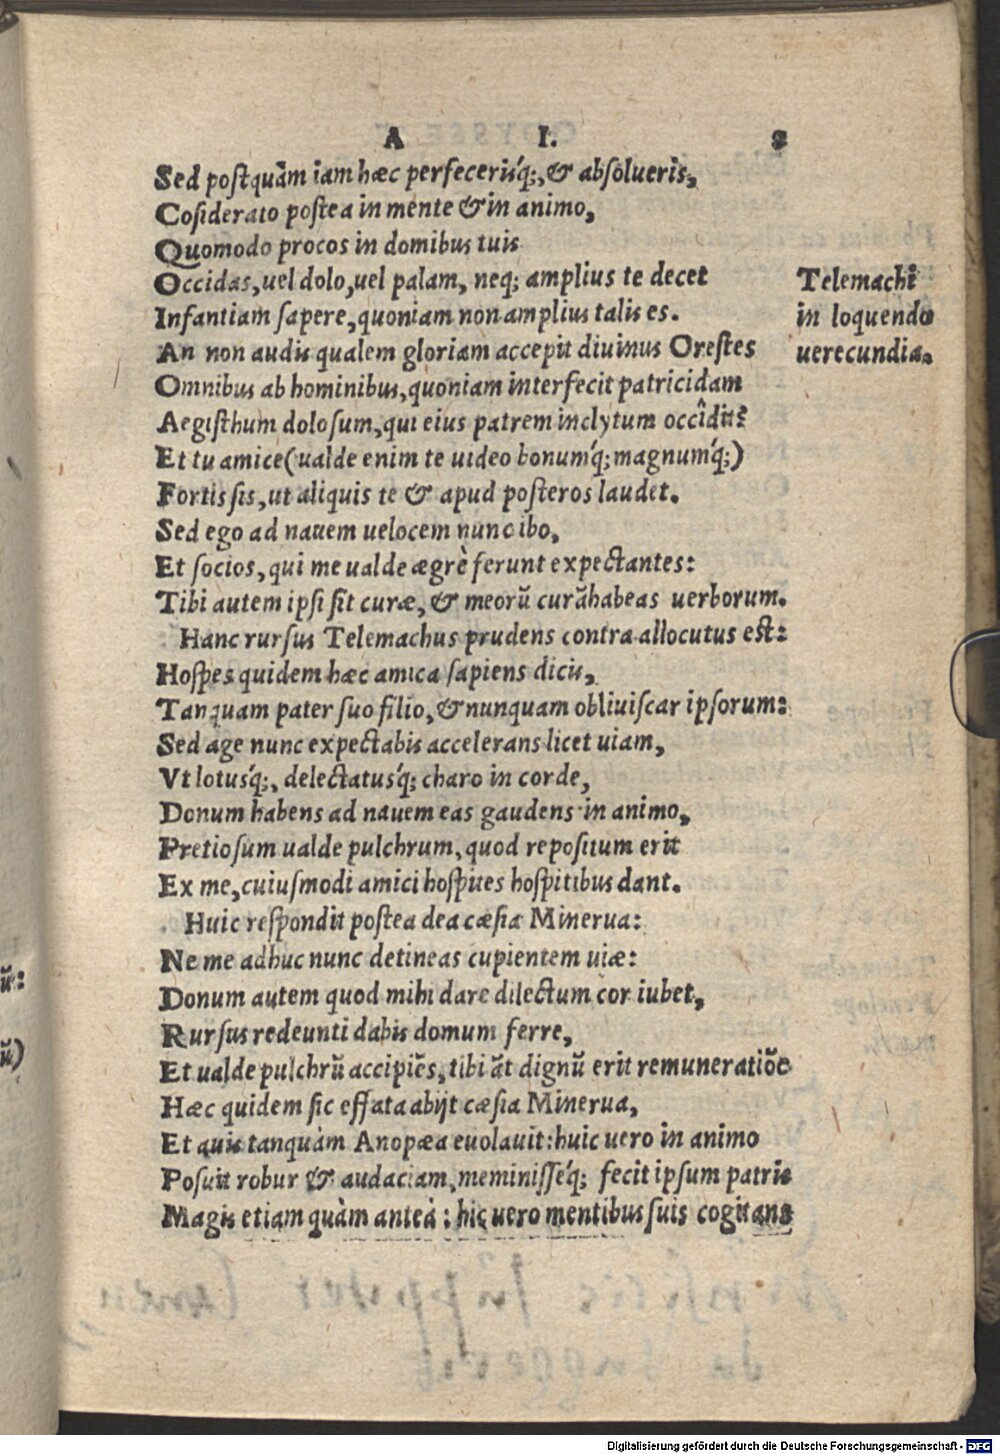 A I. 8
Sed postquàm iam hæc perfecerisq́;, & absolueris,
Cōsiderato postea in mente & in animo,
Quomodo procos in domibus tuis
Occidas, uel dolo, uel palam, neq; amplius te decet
Infantiam sapere, quoniam non amplius talis es.
An non audis qualem gloriam accepit diuinus Orestes
Omnibus ab hominibus, quoniam interfecit patricidam
Aegisthum dolosum, qui eius patrem inclytum occîdit?
Et tu amice (ualde enim te uideo bonumq́; magnumq́;)
Fortis sis, ut aliquis te & apud posteros laudet.
Sed ego ad nauem uelocem nunc ibo,
Et socios, qui me ualde ægrè ferunt expectantes:
Tibi autem ipsi sit curæ, & meorū curā habeas uerborum.
Hanc rursus Telemachus prudens contra allocutus est:
Hospes quidem hæc amica sapiens dicis,
Tanquam pater suo filio, & nunquam obliuiscar ipsorum:
Sed age nunc expectabis accelerans licet uiam,
Vt lotusq́;, delectatusq́; charo in corde,
Donum habens ad nauem eas gaudens in animo,
Pretiosum ualde pulchrum, quod repositum erit
Ex me, cuiusmodi amici hospites hospitibus dant.
Huic respondit postea dea cæsia Minerua:
Ne me adhuc nunc detineas cupientem uiæ:
Donum autem quod mihi dare dilectum cor iubet,
Rursus redeunti dabis domum ferre,
Et ualde pulchrū accipiēs, tibi āt dignū erit remuneratiōe
Hæc quidem sic effata abijt cæsia Minerua,
Et auis tanquàm Anopæa euolauit: huic uero in animo
Posuit robur & audaciam, meminisseq́; fecit ipsum patris
Magis etiam quàm anteà: hic uero mentibus suis cogitans
Telemachi
in loquendo
uerecundia.
ū:
ū)
Digitalisierung gefördert durch die Deutsche Forschungsgemeinschaft - DFG